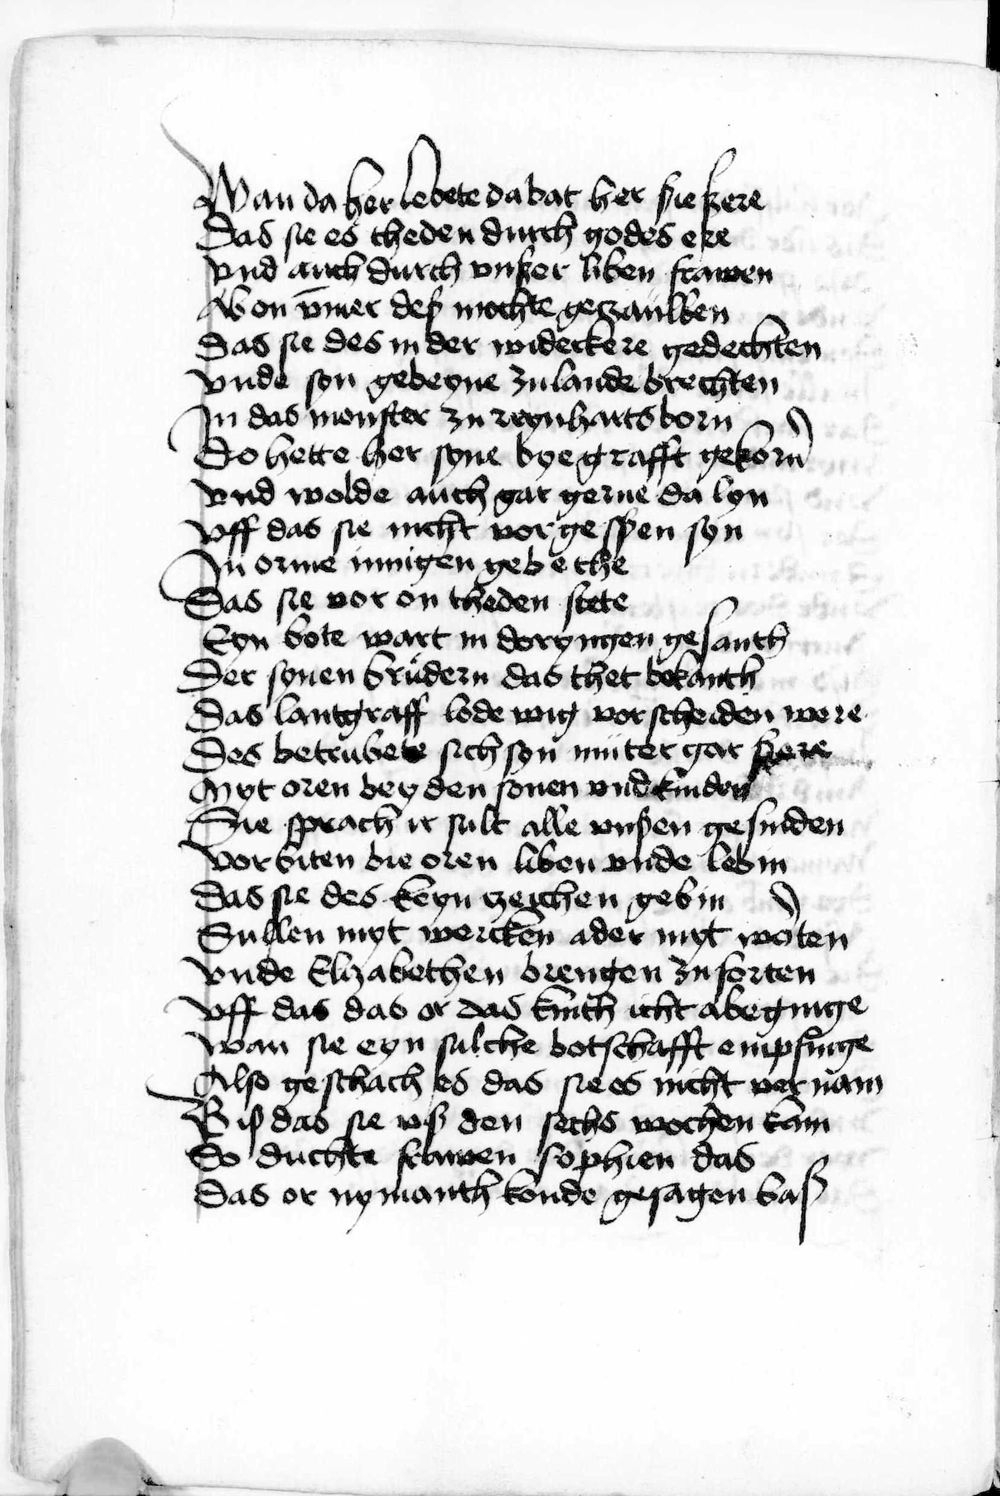 Wan da her lebete da bat her sie sere
Das sie es theden durch godes ere
vnd auch durch vnser liben frawen
Won ummer des mochte gezaulben
Das sie des in der wideckere gedechten
vnde syn gebeyne zu lande brechten
In das monster zu reynhartsborn
Do hette her syne bye grafft gekorn
vnd wolde auch gar gerne da lyn
vff das sie nicht vorgessen syn
In orme innigen gebethe
Das sie vor on theden stete
Eyn bote wart in doryngen gesanth
Der synen brüdern das thet bekanth
Das lantgraff lodewig vorscheiden were
Des betrubete sich syn muter gar sere
Myt oren beyden sonen vnd kinden
Sie sprach ir sult alle vnsen gesinden
vorbiten bie oren liben vnde lebin
Das sie des keyn zeichen gebin
Sullen myt wercken ader myt worten
vnde Elizabethen brengen zu forten
vff das das or das kinth icht abeginge
wan sie eyn sulche botschafft empfinge
Also geschach es das sie es nicht vernam
Biß das sie vß den sechs wochen kam
So duchte frawen sophien das
Das or nymanth konde gesagen baß